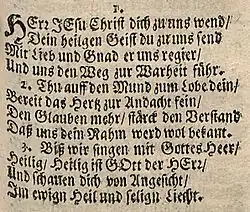 1.
HErr JEsu Christ dich zu uns wend/
Dein heiligen Geist du zu uns send
Mit Lieb und Gnad er uns regier/
Und uns den Weg zur Warheit führ.
2. Thu auff den Mund zum Lobe dein/
Bereit das Hertz zur Andacht fein/
Den Glauben mehr/ stärck den Verstand
Daß uns dein Nahm werd wol bekant.
3. Biß wir singen mit Gottes Heer/
Heilig/ Heilig ist GOtt der HErr/
Und schauen dich von Angesicht/
Im ewign Heil und selign Liecht.